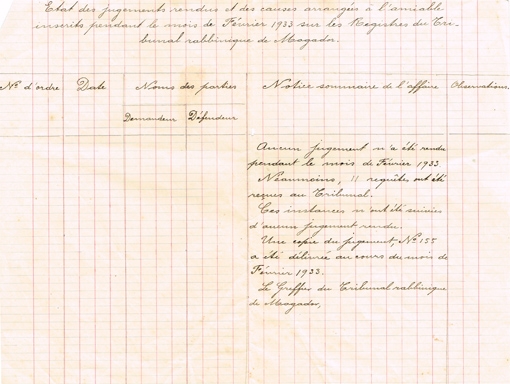 Etat des jugements rendus et des causes arrangées à l'amiable
inscrits pendant le mois de Février 1933 sur les Registres du Tri-
bunal rabbinique de Mogador.
No d'ordre Date Noms des parties Notice sommaire de l'affaire Observations.
Demandeur Défendeur
Aucun jugement n'a été rendu
pendant le mois de Février 1933
Néanmoins, 11 requêtes ont été
reçues au Tribunal.
Ces instances n'ont été suivies
d'aucun jugement rendu.
Une copie du jugement, No
a été délivrée au cours du mois de
Février 1933.
Le Greffier du Tribunal rabbinique
de Mogador,